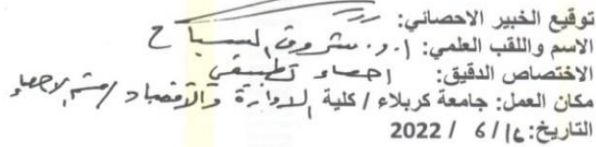 توقيع الخبير الاحصائي:
الاسم واللقب العلمي: أ.د. شروق السباح
الاختصاص الدقيق: احصاء تطبيقي
مكان العمل: جامعة كربلاء / كلية الادارة والاقتصاد / قسم الاحصاء
التاريخ: 16 / 6 / 2022